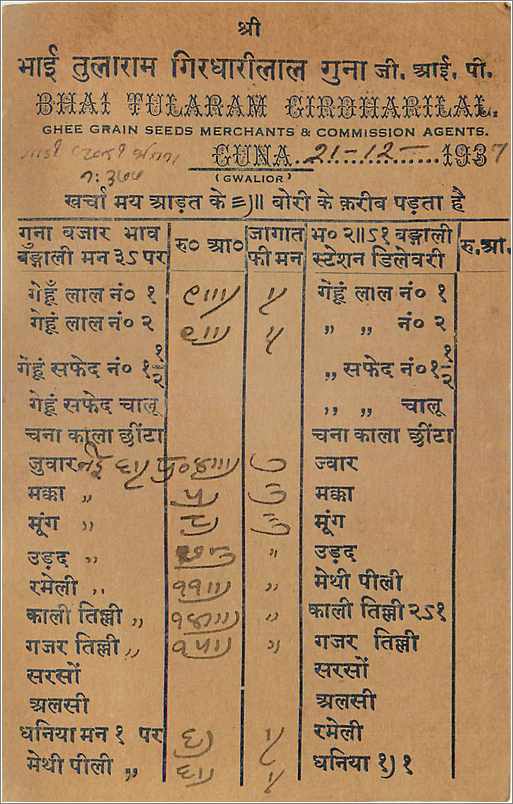 श्री
भाई तुलाराम गिरधारीलाल गुना जी. आई. पी.
BHAI TULARAM GIRDHARILAL.
GHEE GRAIN SEEDS MERCHANTS & COMMISSION AGENTS.
GUNA..21-12-........1937
(GWALIOR)
खर्चा मय आड़त के ≡)॥ बोरी के क़रीब पड़ता है
गुना बजार भाव रु० आ० जागात भ० २॥ऽ१ बङ्गाली रु. आ.
बङ्गाली मन ३ऽ पर फी मन स्टेशन डिलेवरी
गेहूँ लाल नं० १ गेहूं लाल नं० १
गेहूं लाल नं० २ ,, ,, नं० २
गेहूं सफेद नं० १½ ,, सफेद नं० १½
गेहूं सफेद चालू ,, ,, चालू
चना काला छींटा चना काला छींटा
जुवार नई ज्वार
मक्का ,, मक्का
मूंग ,, मूंग
उड़द ,, ,, उड़द
रमेली ,, ११॥। ,, मेथी पीली
काली तिल्ली ,, १४॥। ,, काली तिल्ली २ऽ१
गजर तिल्ली ,, १५॥ ,, गजर तिल्ली
सरसों सरसों
अलसी अलसी
धनिया मन १ पर ६) रमेली
मेथी पीली ,, ६॥ धनिया १) १